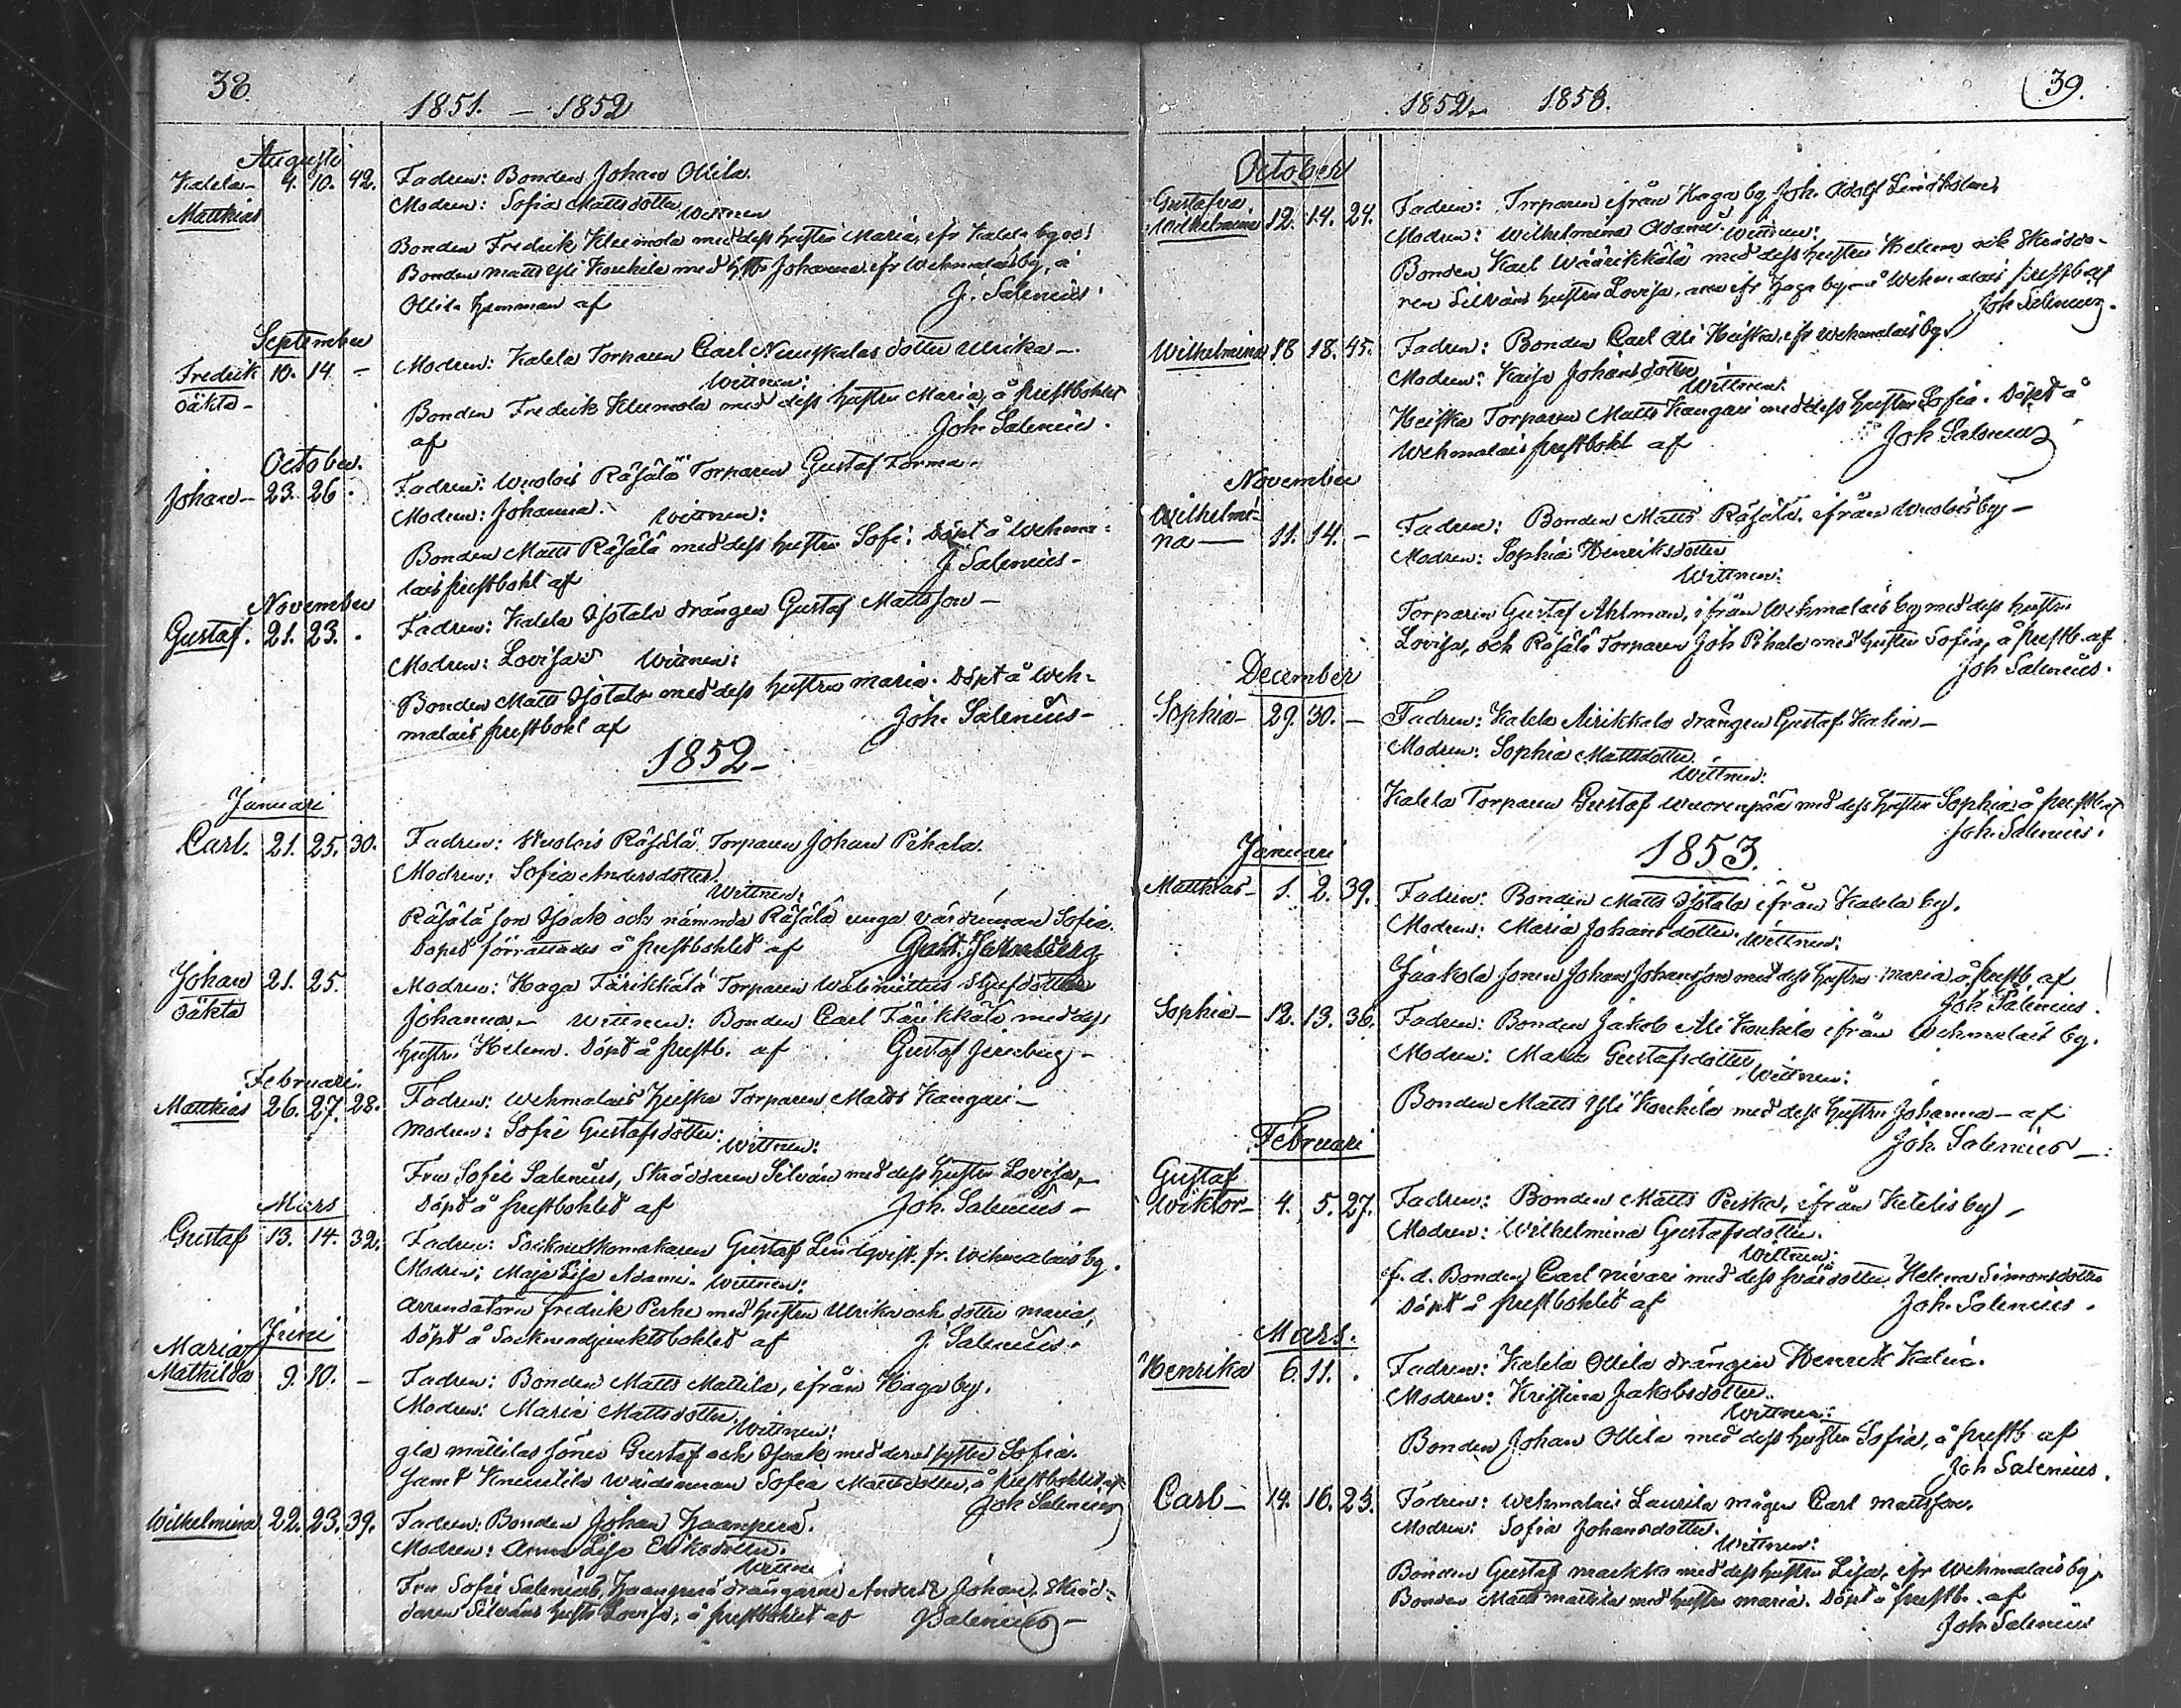 38.
1851. — 1852
Augusti
Kalela — 9. 10. 42. Fadren: Bonden Johan Ollila.
Matthias Modren: Sofia Mattsdotter
Wittnen
Bonden Fredrik Kleemola med dess hustru Maria, ifr Kalela by och
Bonden Matts Yli Koukila med hstr Johanna ifr Wehmalais by, å
Ollila hemman af J. Salenius.
September
Fredrik 10. 14 – Modren: Kalela Torparen Carl dotter Ulrika —
oäkta — Wittnen:
Bonden Fredrik Kleemola med dess hustru Maria, å prestbohlet
af Joh. Salenius.
October.
Johan — 23. 26 . Fadren: Wuolois Räsälä Torparen Gustaf Forma.
Modren: Johanna. Wittnen:
Bonden Matts Räsälä med dess hustru Sofi: Döpt å Wehma-
lais prestbohl af J Salenius —
November
Gustaf. 21. 23. . Fadren: Kalela Isotalo drängen Gustaf Mattsson —
Modren: Lovisa Wittnen:
Bonden Matts Isotalo med dess hustru Maria. Döpt å Weh-
malais prestbohl af Joh. Salenius —
1852 —
Januari
Carl. 21. 25. 30. Fadren: Wuolois Räsälä Torparen Johan Pihala.
Modren: Sofia Andersdotter.
Wittnen:
Räsälä son Isaak och nämnda Räsälä unga värdinnan Sofia.
Dopet förrättades å prestbohlet af Gust.
Johan 21. 25. Modren: Haga Färikkälä Torparen Styfdotter
oäkta Johanna — Wittnen: Bonden Carl Färikkälä med dess
hustru Helena. Döpt å prestb. af Gustaf
Februari.
Matthias 26. 27. 28. Fadren: Wehmalais Heiska Torparen Matts Kangari —
Modren: Sofie Gustafsdotter.
Wittnen:
Fru Sofie Salenius, Skräddaren Silvän med dess hustru Lovisa, —
Döpt å prestbohlet af Joh. Salenius —
Mars
Gustaf 13. 14. 32. Fadren: Sockneskomakaren Gustaf Lindqvist fr. Wehmalais by.
Modren: Maja Lisa Adami. Wittnen:
Arrendatorn Fredrik Perho med hustru Ulrika och dotter Maria,
Döpt å Sockneadjunktsbohlet af J. Salenius.
Juni
Maria
Mathilda 9. 10. — Fadren: Bonden Matts Mattila, ifrån Haga by.
Modren: Maria Mattsdotter.
Wittnen:
gla Mattilas söner Gustaf och Isaak med deras syster Sofia.
samt Knuutila Wärdinnan Sofia Mattsdotter, å prestbohlet af
Joh Salenius
Wilhelmina 22. 23. 39. Fadren: Bonden Johan Haanperä.
Modren: Anna Lisa Eriksdotter.
Wittnen:
Fru Sofie Salenius, Haanperä drängarne Anders & Johan, Skräd-
daren Silväns hustr Lovisa, å prestbohlet af JSalenius —
39.
1852 — 1853.
October
Gustafva
Wilhelmina 12. 14. 24. Fadren: Torparen ifrån Haga by Joh. Adolf Lindholm.
Modren: Wilhelmina Adami. Wittnen:
Bonden Karl Wäärikkälä med dess hustru Helena och Skrädda-
ren Silväns hustru Lovisa, ifr Haga by — å Wehmalais prestb af
Joh Salenius.
Wilhelmina 18 18. 45. Fadren: Bonden Carl Ali Heiska, ifr Wehmalais by.
Modren: Kaisa Johansdotter
Wittnen:
Heiska Torparen Matts Kangari med dess hustru Sofia. Döpt å
Wehmalais prestbohl af Joh Salenius
November
Wilhelmi-
na — 11. 14. — Fadren: Bonden Matts Räsälä, ifrån Wuolois by —
Modren: Sophia Henriksdotter
Wittnen:
Torparen Gustaf Ahlman, ifrån Wehmalais by med dess hustru
Lovisa, och Räsälä Torparen Joh Pihala med hustru Sofia, å prestb. af
Joh Salenius.
December
Sophia — 29. 30. — Fadren: Kalela Äirikkala drängen Gustaf Kalin —
Modren: Sophia Mattsdotter.
Wittnen:
Kalela Torparen Gustaf Wuorenpää med dess hustru Sophia å prestb af
Joh. Salenius.
1853.
Januari
Matthias — 1. 2. 39. Fadren: Bonden Matts Isotalo ifrån Kalela by.
Modren: Maria Johansdotter. Wittnen:
Jaakola sonen Johan Johansson med dess hustru Maria å prestb. af
Joh Salenius.
Sophia — 12. 13. 36. Fadren: Bonden Jakob Ali Koukila ifrån Wehmalais by.
Modren: Maria Gustafsdotter
Wittnen:
Bonden Matts Yli Koukila med dess hustru Johanna — af
Joh. Salenius —
Februari
Gustaf
Wiktor — 4. 5. 27. Fadren: Bonden Matts Peska, ifrån Ketelis by —
Modren: Wilhelmina Gustafsdotter.
Wittnen:
f. d. Bonden Carl Nivari med dess Helena Simonsdotter
Döpt å prestbohlet af Joh. Salenius.
Mars.
Henrika 6. 11. . Fadren: Kalela Ollila drängen Henrik Kalin.
Modren: Kristina Jakobsdotter.
Wittnen:
Bonden Johan Ollila med dess hustru Sofia, å prestb af
Joh Salenius.
Carl — 14. 16. 23. Fadren: Wehmalais Laurila mågen Carl Mattsson.
Modren: Sofia Johansdotter.
Wittnen:
Bonden Gustaf Markko med dess hustru Lisa, ifr Wehmalais by,
Bonden Matts Mattila med hustru Maria. Döpt å prestb. af
Joh Salenius